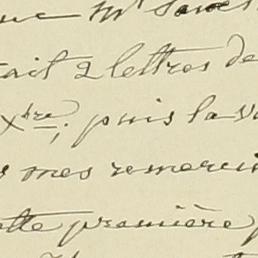 que Mr
ait 2 lettres de
Xbre; puis la v
s mes remerci
ette première